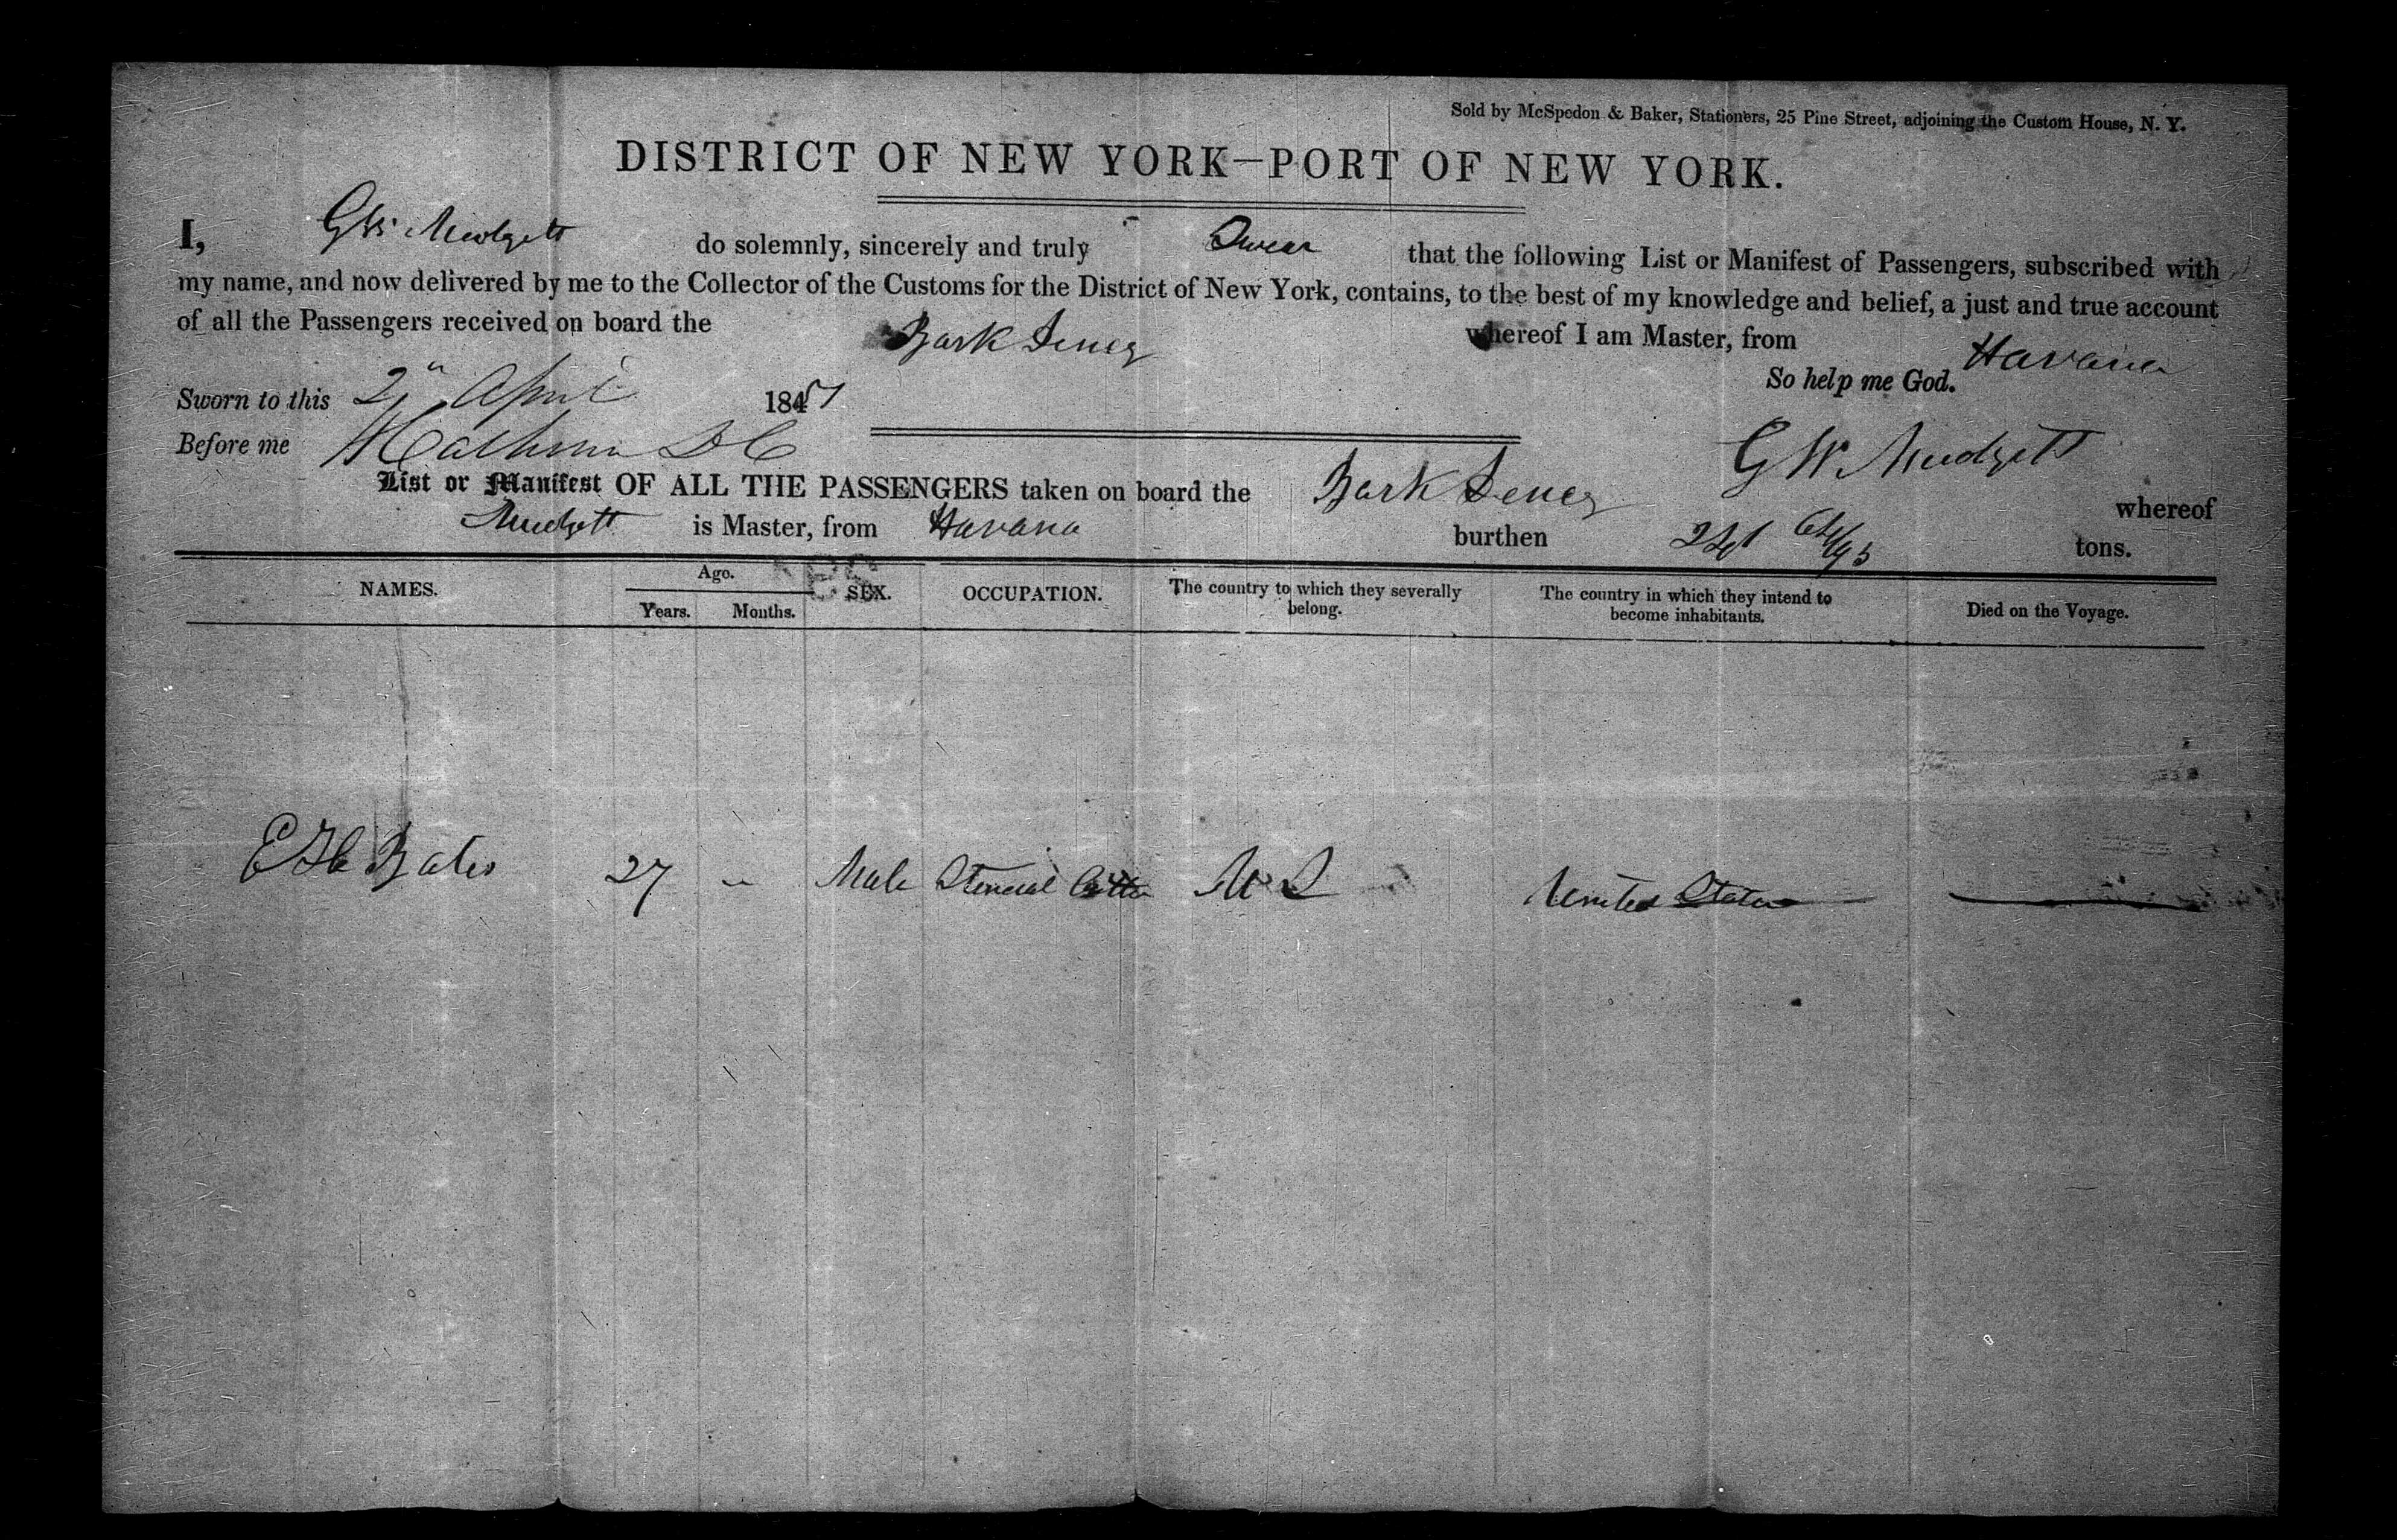 Sold by McSpedon & Baker, Stationers, 25 Pine Street, adjoining the Custom House, N. Y.
DISTRICT OF NEW YORK—PORT OF NEW YORK.
I, G W Mudgett do solemnly, sincerely and truly Swear that the following List or Manifest of Passengers, subscribed with
my name, and now delivered by me to the Collector of the Customs for the District of New York, contains, to the best of my knowledge and belief, a just and true account
of all the Passengers received on board the Bark whereof I am Master, from Havana
So help me God.
Sworn to this 2" April 1847
Before me D C
G W Mudgett
List or Manifest OF ALL THE PASSENGERS taken on board the Bark whereof
Mudgett is Master, from Havana burthen tons.
NAMES. Age. SEX. OCCUPATION. The country to which they severally belong. The country in which they intend to become inhabitants. Died on the Voyage.
Years. Months.
Bates 27 " Male Stencial Cutter U S United States